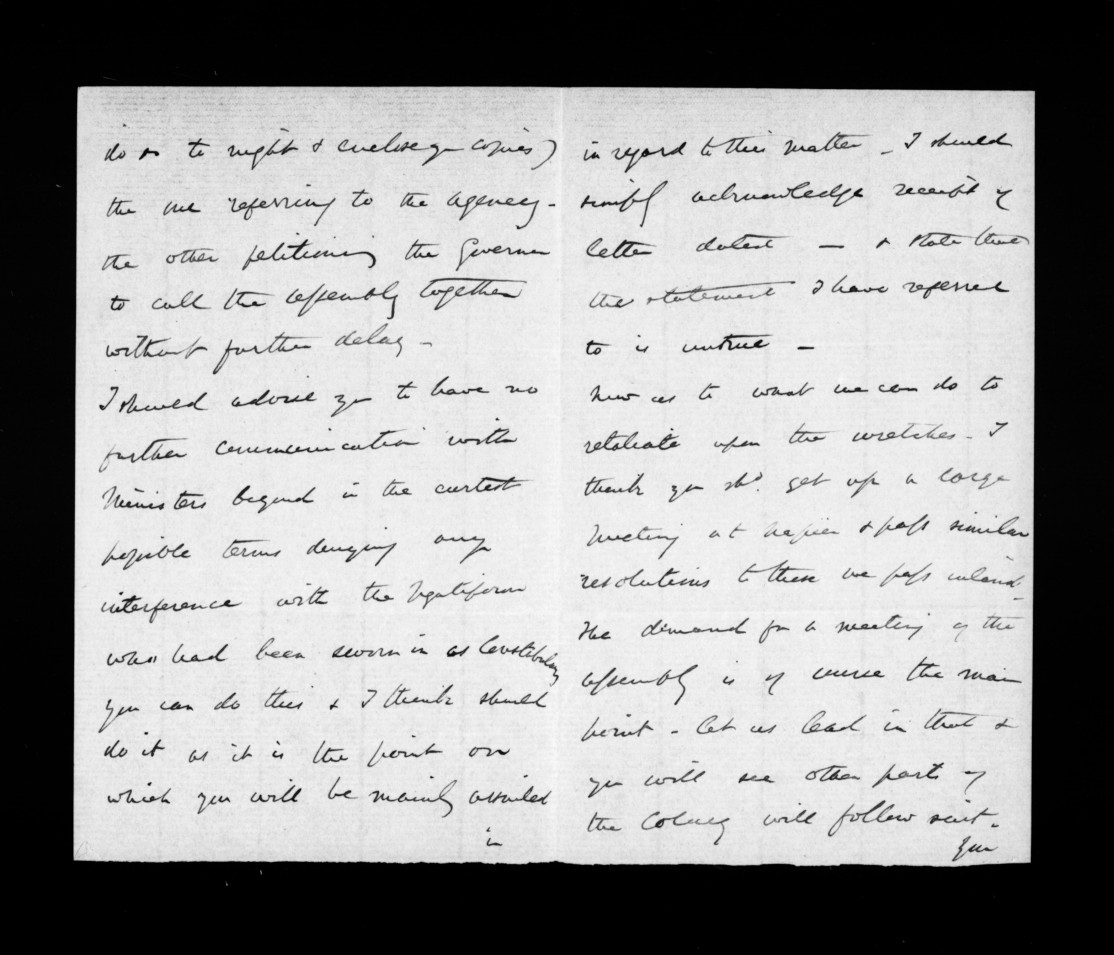 do so to night & enclose you copies)
the one referring to the agency -
the other petitioning the Governor
to call the assembly together
without further delay -
I should advise you to have no
further communication with
Ministers beyond in the curtest
possible terms denying any
interference with the Ngatiporou
who had been sworn in as Constabulary
you can do this & I think should
do it as it is the point on
which you will be mainly assailed
in
in regard to this matter - I should
simply acknowledge receipt of
letter dated — & state that
the statement I have referred
to is untrue -
Now as to what we can do to
retaliate upon the wretches - I
think you shd. get up a large
Meeting at Napier & pass similar
resolutions to these we pass inland -
the demand for a meeting of the
assembly is of course the main
point - let us lead in that &
you will see other parts of
the Colony will follow suit -
You